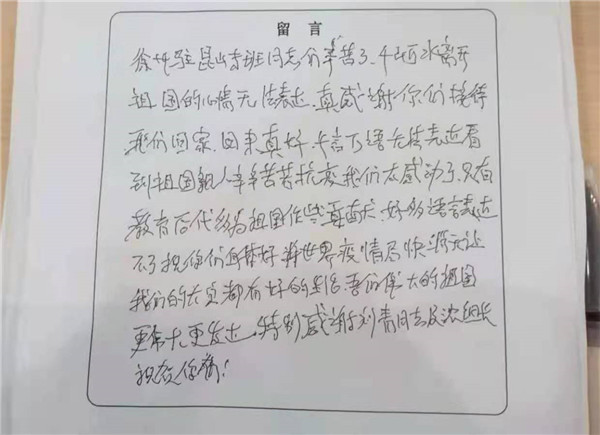 留 言
徐州驻昆山专班同志们辛苦了.千山万水离开
祖国的心情无法表达.真感谢你们接待
我们回家.回来真好.千言万语无法表达看
到祖国亲人辛辛苦苦抗疫我们太感动了.只有
教育后代多为祖国作些贡献.好多语言表达
不了祝你们身体好 世界疫情尽快消灭让
我们的 都有好的生活 伟大的祖国
更 大更发达.特别感谢刘青同志及沈组长
祝 你们!